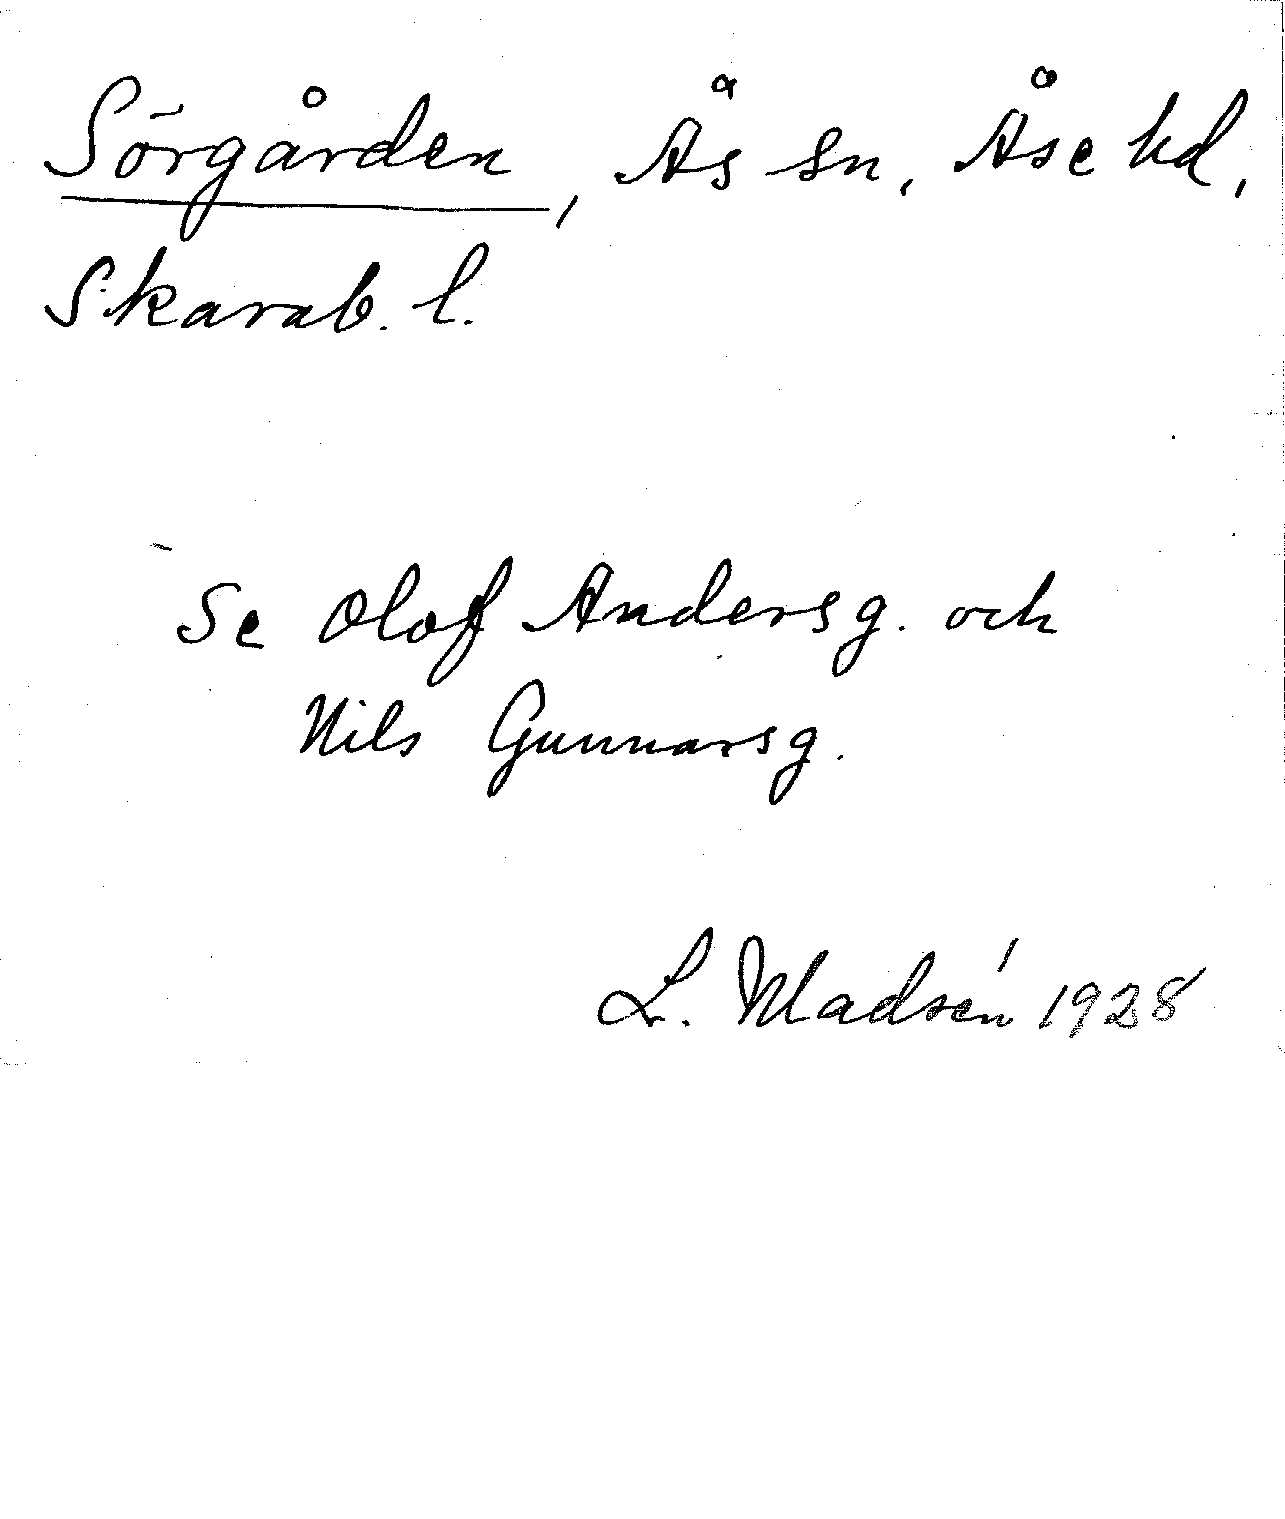 Sörgården, Ås sn, Åse hd,
Skarab. l.
Se Olof Andersg. och
Nils Gunnarsg.
L. Madsén 1928